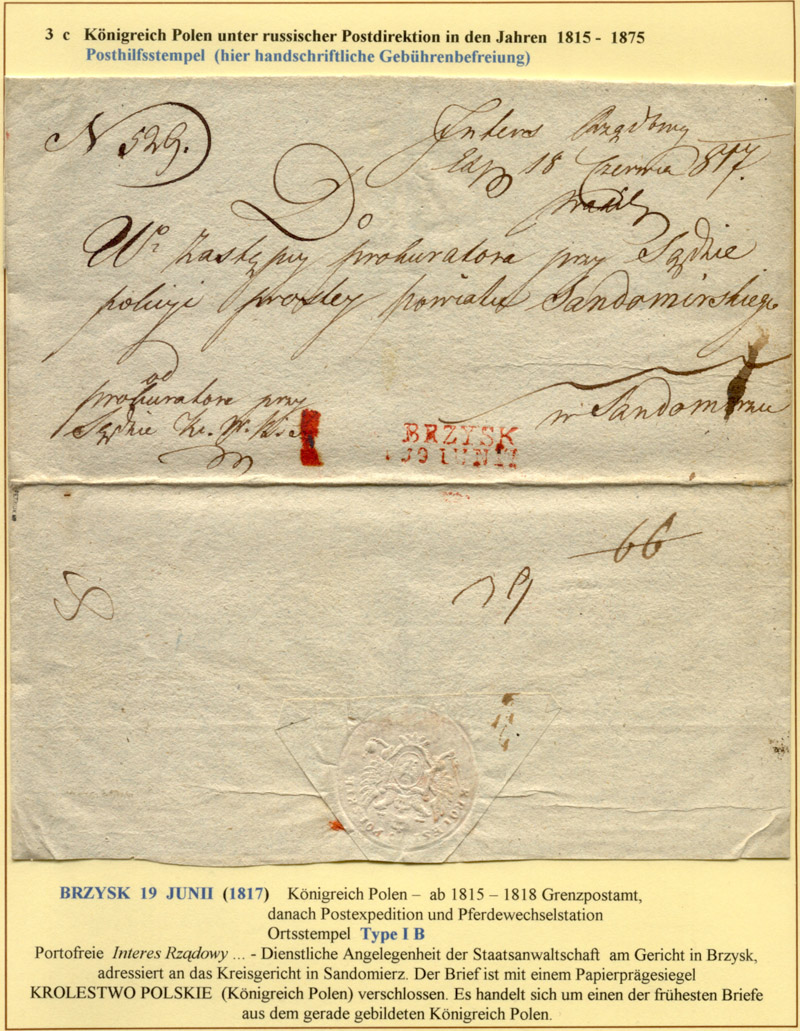 3 c Königreich Polen unter russischer Postdirektion in den Jahren 1815 - 1875
Posthilfsstempel (hier handschriftliche Gebührenbefreiung)
N 529.
Interes Rządowy
Exp 18 Czerwca 817.
Do
Wo Zastępcy prokuratora przy Sądzie
policyi prostey powiatu Sandomirskiego
w Sandomirzu
od
prokuratora przy
Sądzie
BRZYSK
19 IUNII
66
19
BRZYSK 19 JUNII (1817) Königreich Polen – ab 1815 – 1818 Grenzpostamt,
danach Postexpedition und Pferdewechselstation
Ortsstempel Type I B
Portofreie Interes Rządowy ... - Dienstliche Angelegenheit der Staatsanwaltschaft am Gericht in Brzysk,
adressiert an das Kreisgericht in Sandomierz. Der Brief ist mit einem Papierprägesiegel
KROLESTWO POLSKIE (Königreich Polen) verschlossen. Es handelt sich um einen der frühesten Briefe
aus dem gerade gebildeten Königreich Polen.